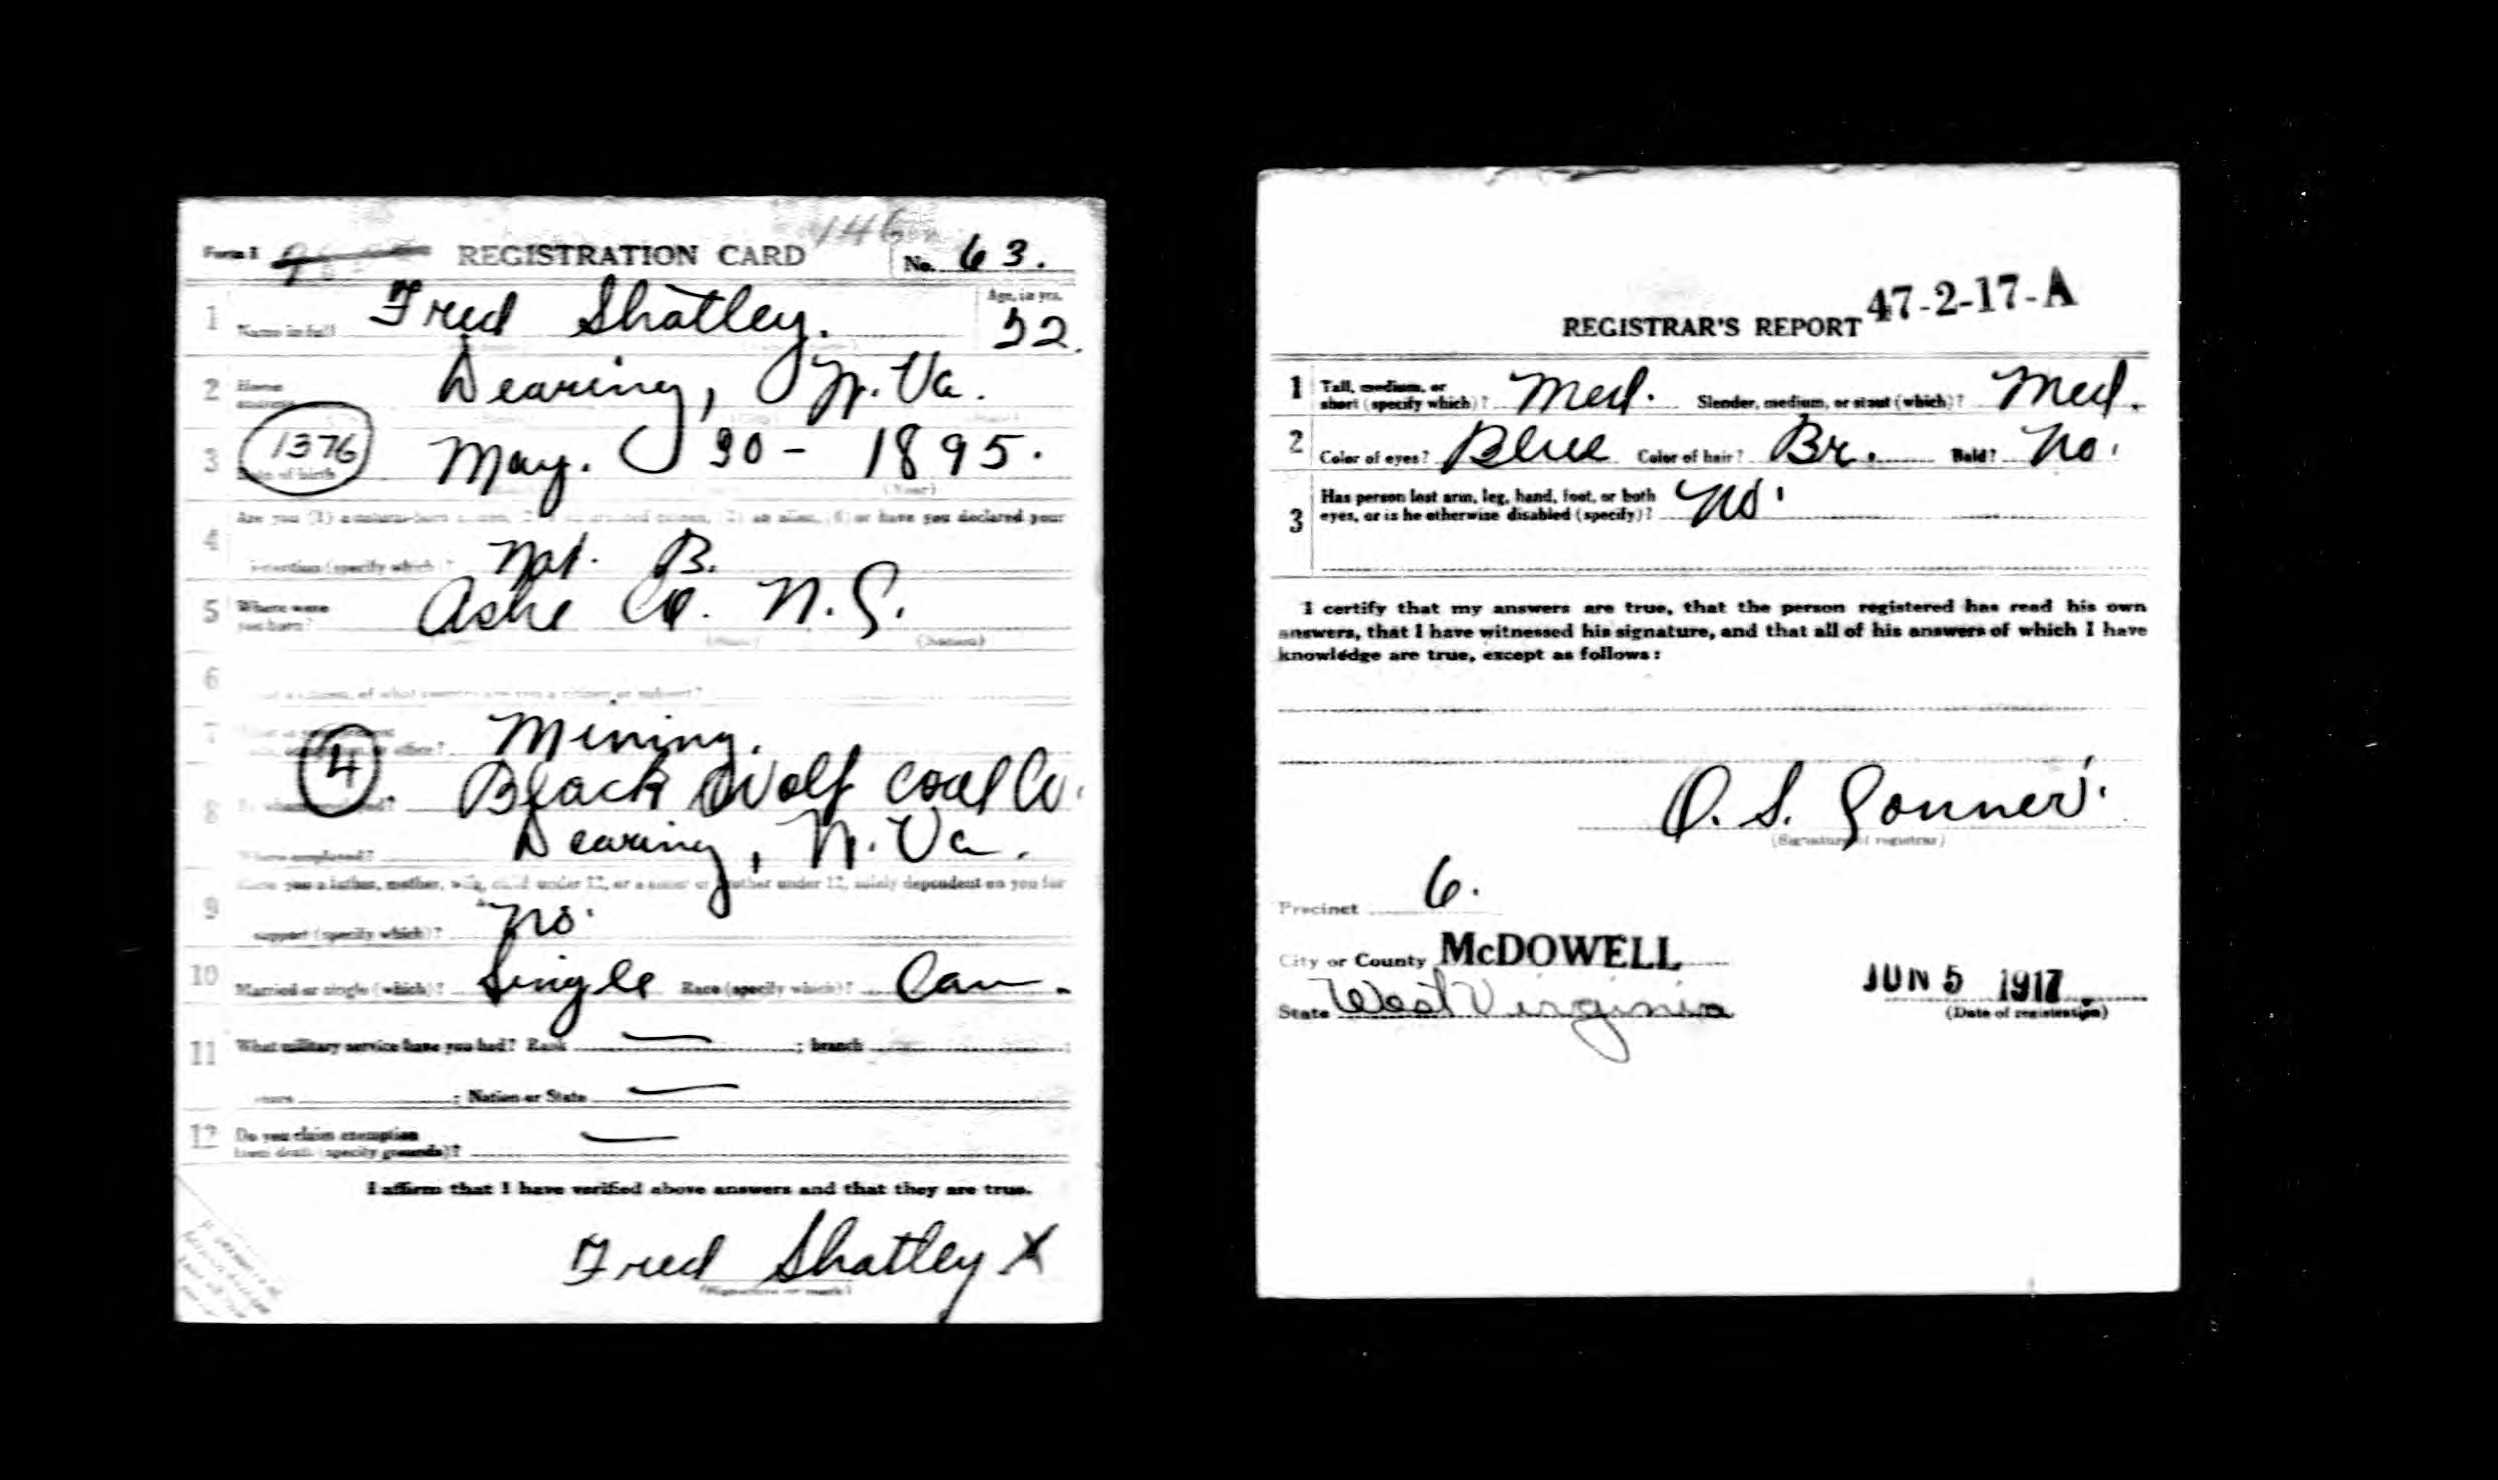 Form 1 REGISTRATION CARD 146 No. 63.
1 Name in full Fred Shatley. Age, in yrs. 22.
2 Home address Dearing, W. Va.
3 1376 Date of birth May. 30 - 1895.
(Year)
4 Are you (1) a natural-born citizen, (2) a naturalized citizen, (3) an alien, (4) or have you declared your
intention (specify which)? Nat. B.
5 Where were you born? Ashe Co. N.C.
(State) (Nation)
6 If not a citizen, of what country are you a citizen or subject?
7 office? Mining.
4
8 By whom employed? Black Wolf Coal Co.
Where employed? Dearing, W. Va.
9 Have you a father, mother, wife, child under 12, or a sister or brother under 12, solely dependent on you for
support (specify which)? No.
10 Married or single (which)? Single Race (specify which)? Cau.
11 What military service have you had? Rank — ; branch
years ; Nation or State —
12 Do you claim exemption —
from draft (specify grounds)?
I affirm that I have verified above answers and that they are true.
Fred Shatley X
(Signature or mark)
REGISTRAR'S REPORT 47-2-17-A
1 Tall, medium, or
short (specify which)? Med. Slender, medium, or stout (which)? Med.
2 Color of eyes? Blue Color of hair? Br. Bald? No.
3 Has person lost arm, leg, hand, foot, or both
eyes, or is he otherwise disabled (specify)? No.
I certify that my answers are true, that the person registered has read his own
answers, that I have witnessed his signature, and that all of his answers of which I have
knowledge are true, except as follows:
O. S.
(Signature of registrar)
Precinct 6.
City or County McDOWELL
State West Virginia JUN 5 1917
(Date of registration)